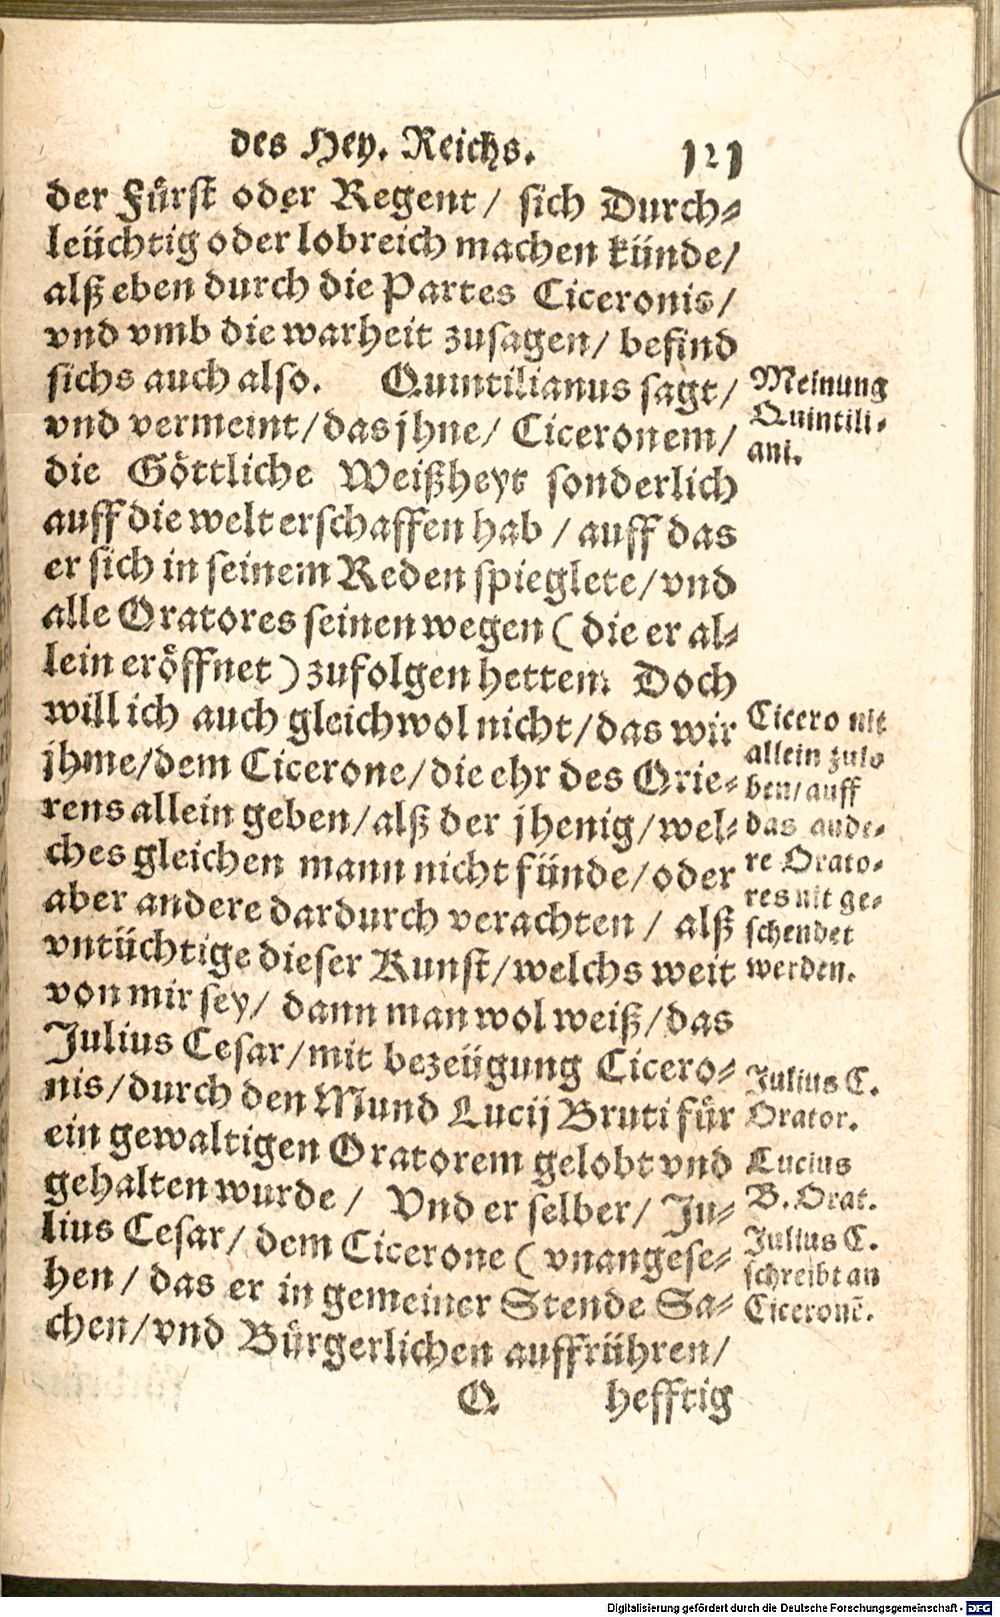 des Hey. Reichs. 121
der Fürst oder Regent/ sich Durch-
leüchtig oder lobreich machen künde/
alß eben durch die Partes Ciceronis/
vnd vmb die warheit zusagen/ befind
sichs auch also. Quintilianus sagt/
vnd vermeint/das jhne/ Ciceronem/
die Göttliche Weißheyt sonderlich
auff die welt erschaffen hab / auff das
er sich in seinem Reden spieglete/vnd
alle Oratores seinen wegen ( die er al-
lein eröffnet ) zufolgen hetten. Doch
will ich auch gleichwol nicht/das wir
jhme/dem Cicerone/die ehr des Orie-
rens allein geben/alß der jhenig/wel-
ches gleichen mann nicht fünde/oder
aber andere dardurch verachten / alß
vntüchtige dieser Kunst/welchs weit
von mir sey/ dann man wol weiß/das
Julius Cesar/mit bezeügung Cicero-
nis/durch den Mund Lucij Bruti für
ein gewaltigen Oratorem gelobt vnd
gehalten wurde / Vnd er selber/ Ju-
lius Cesar/ dem Cicerone ( vnangese-
hen / das er in gemeiner Stende Sa-
chen/vnd Bürgerlichen auffrühren/
Q hefftig
Meinung
Quintili-
ani.
Cicero nit
allein zulo
ben/auff
das ande-
re Orato-
res nit ge-
schendet
werden.
Julius C.
Orator.
Lucius
B. Orat.
Julius C.
schreibt an
Ciceronē.
Digitalisierung gefördert durch die Deutsche Forschungsgemeinschaft - DFG